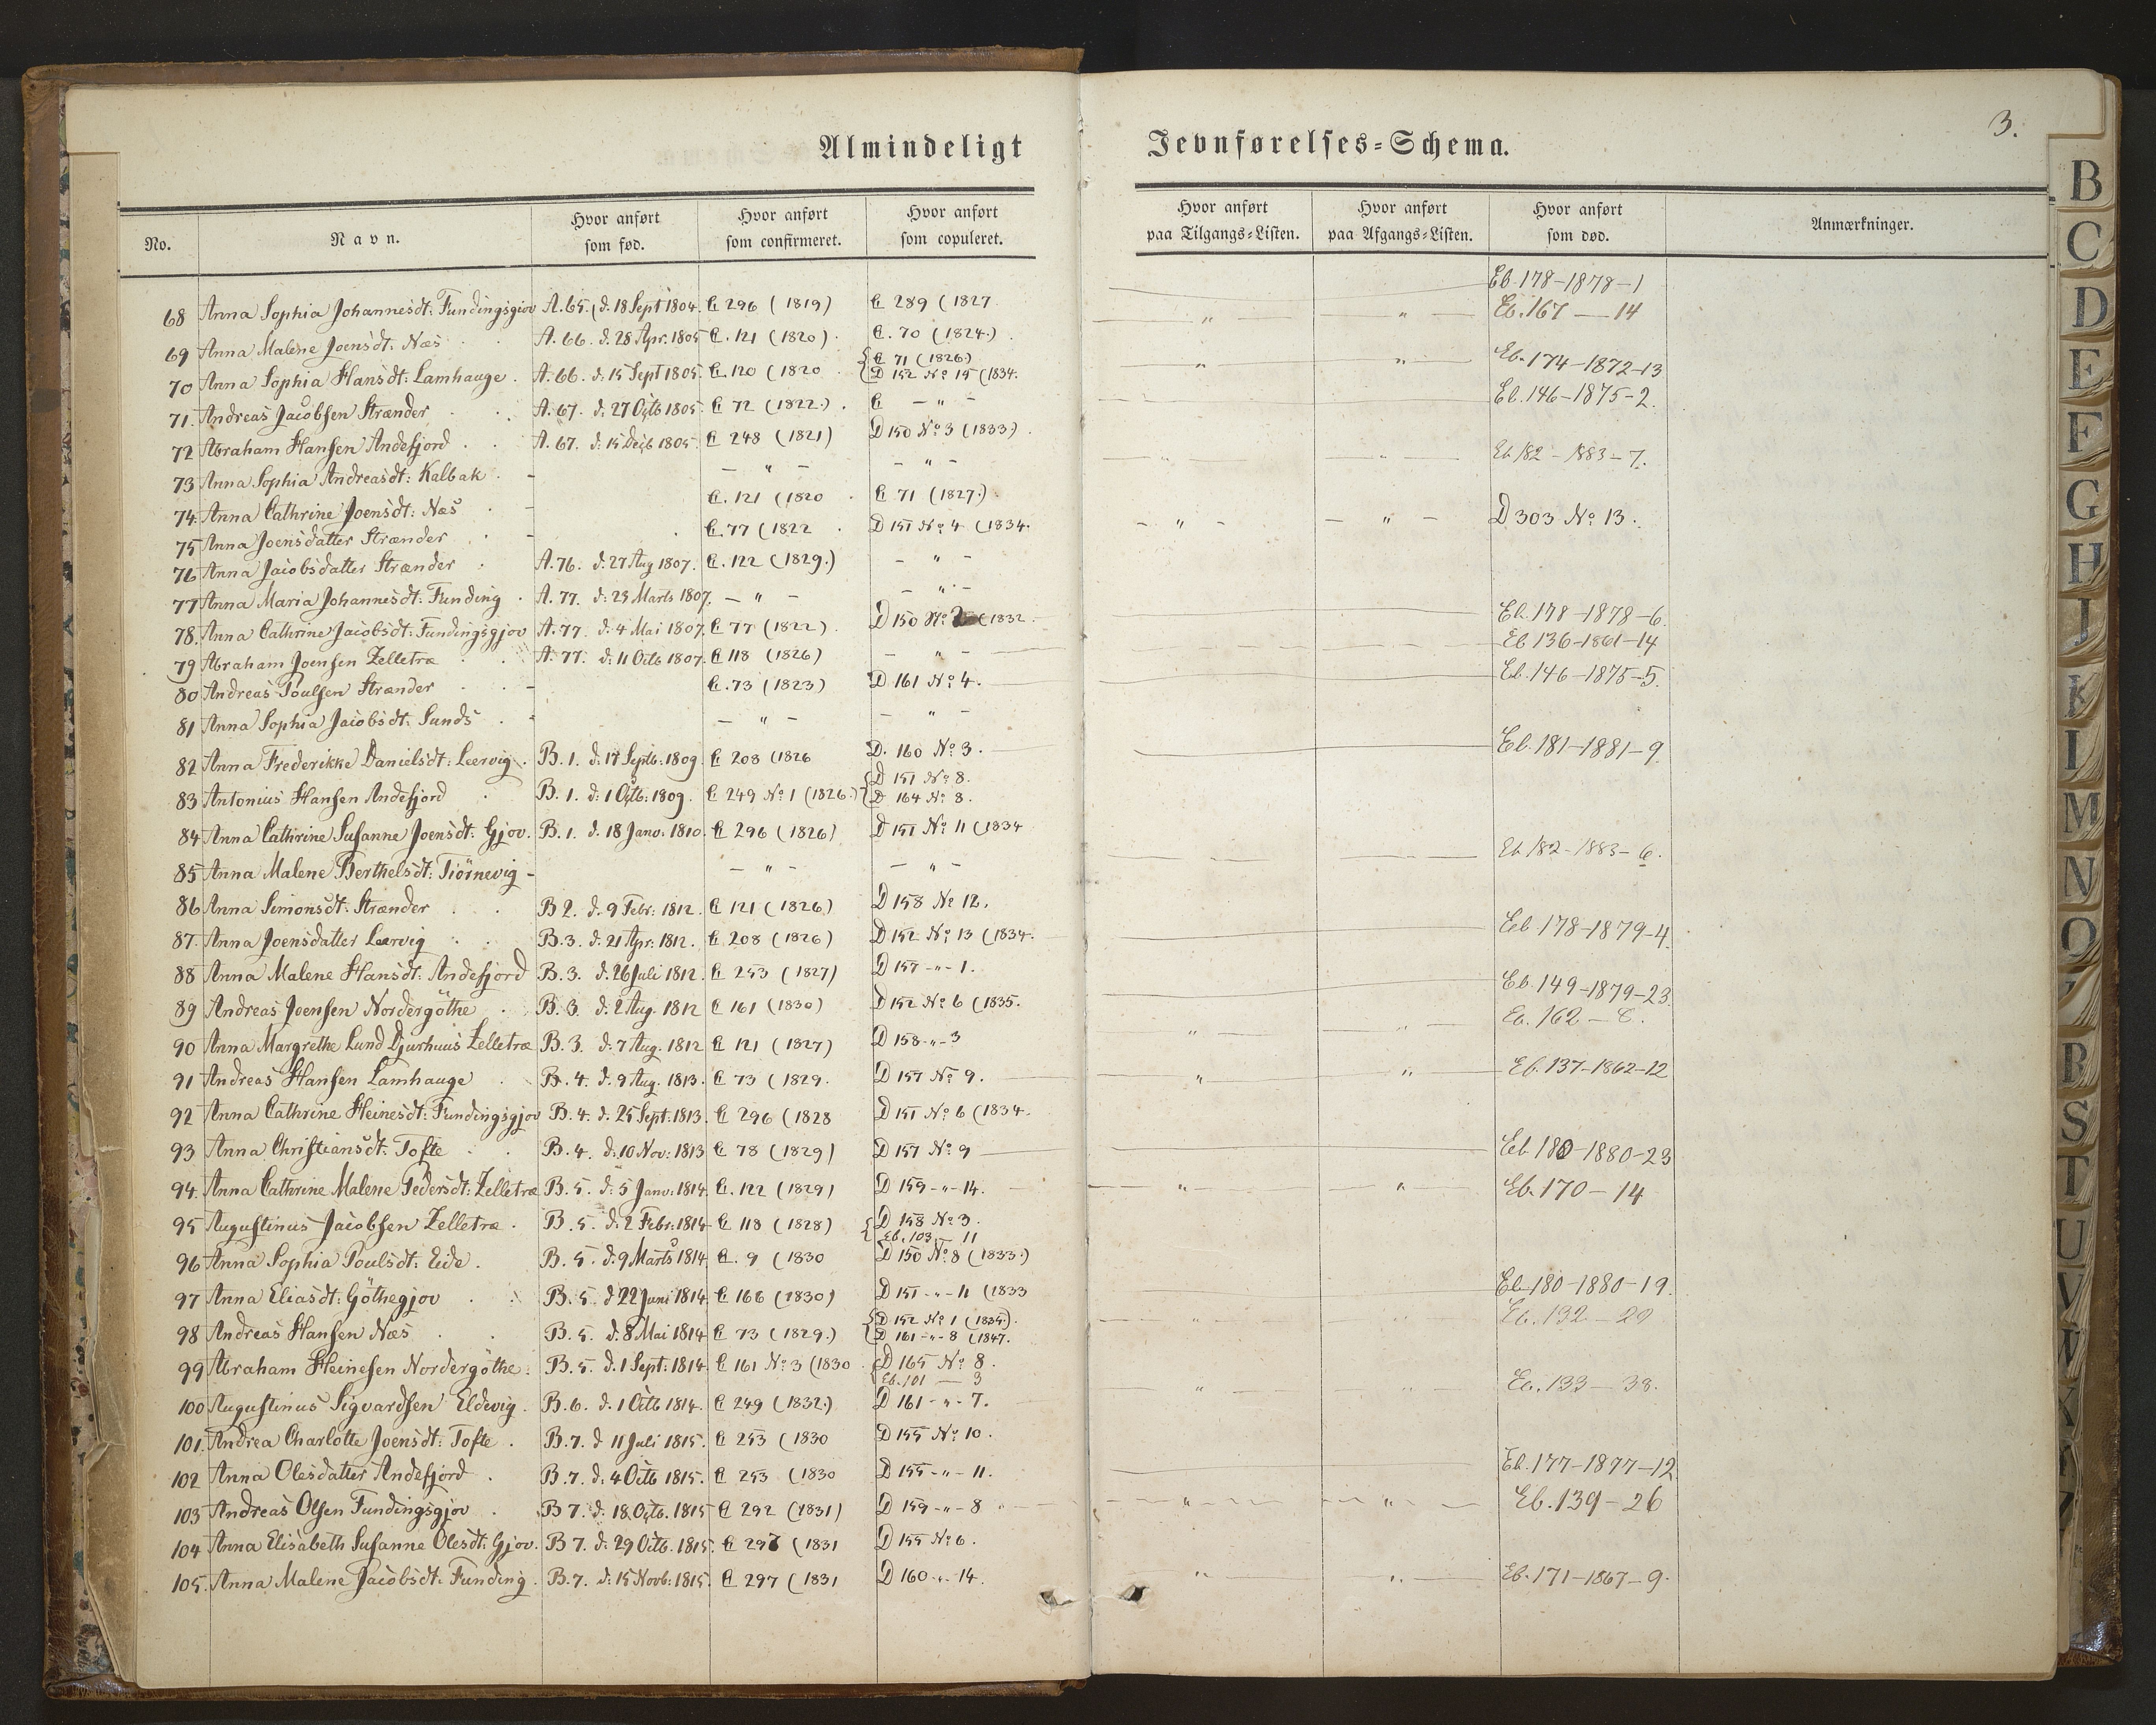 Almindeligt Jevnførelses=Schema.
3.
No. Navn. Hvor anført som fød. Hvor anført som confirmeret. Hvor anført som copuleret. Hvor anført paa Tilgangs=Listen. Hvor anført paa Afgangs=Listen. Hvor anført som død. Anmærkninger.
68 Anna Sophia Johannesdt: Fundingsgjov A. 65. (d. 18 Sept 1804. C 296 (1819) C 289 (1827 Eb. 178-1878-1
69 Anna Malene Joensdt: Næs A. 66. d. 28 Apr. 1805 C. 121 (1820) C. 70 (1824.) " " Eb. 167 — 14
70 Anna Sophia Hansdt: Lamhauge. A. 66. d: 15 Sept 1805. C. 120 (1820 { C 71 (1826) D 152 No 15 (1834. " " Eb. 174-1872-13
71. Andreas Jacobsen Strænder A. 67. d: 27 Octb 1805. C 72 (1822.) C - " - Eb. 146-1875-2.
72 Abraham Hansen Andefjord A. 67. d: 15 Decb 1805. C 248 (1821) D 150 No 3 (1833)
73 Anna Sophia Andreasdt: Kalbak - - " - - " - " " Eb 182-1883-7.
74. Anna Cathrine Joensdt: Næs - C. 121 (1820 C 71 (1827.)
75 Anna Joensdatter Strænder - C. 77 (1822 D 151 No 4 (1834. - " - - " - D 303 No 13.
76 Anna Jacobsdatter Strænder A. 76. d. 27 Aug 1807. C. 122 (1829.) - " -
77 Anna Maria Johannesdt: Funding A. 77. d: 29 Marts 1807. - " - - " -
78. Anna Cathrine Jacobsdt: Fundingsgjov A. 77. d: 4 Mai 1807. C 77 (1822) D 150 No 2 (1832 Eb. 178-1878-6.
79 Abraham Joensen Zelletræ A. 77. d: 11 Octb 1807. C 118 (1826) - " - Eb 136-1861-14
80 Andreas Poulsen Strænder - C. 73 (1823) D 161 No 4. Eb. 146-1875-5.
81 Anna Sophia Jacobsdt: Sunds - - " - - " -
82 Anna Frederikke Danielsdt: Leervig. B. 1. d: 17 Septb: 1809. C 208 (1826 D. 160 No 3. Eb. 181-1881-9.
83 Antonius Hansen Andefjord B. 1. d: 1 Octb: 1809. C 249 No 1 (1826.) { D 151 No 8. D 164 No 8.
84 Anna Cathrine Susanne Joensdt: Gjov. B. 1. d. 18 Janv. 1810. C 296 (1826) D 151 No 11 (1834
85 Anna Malene Berthelsdt: Tiörnevig - - " - - " - Eb 182-1883-6.
86 Anna Simonsdt: Strænder B 2. d. 9 Febr: 1812. C 121 (1826) D 158 No 12.
87. Anna Joensdatter Leervig B. 3. d: 21 Apr: 1812. C 208 (1826) D 152 No 13 (1834. Eb. 178-1879-4.
88 Anna Malene Hansdt: Andefjord B. 3. d. 26 Juli 1812. C 253 (1827) D 157 - " - 1.
89 Andreas Joensen Nordergöthe B. 3. d: 2 Aug. 1812 C 161 (1830) D 152 No 6 (1835. Eb. 149-1879-23.
90 Anna Margrethe Lund Djurhuus Zelletræ B. 3. d: 7 Aug. 1812 C 121 (1827) D 158 - " - 3 " " Eb. 162 — 8.
91 Andreas Hansen Lamhauge B. 4. d. 9 Aug. 1813. C 73 (1829. D 157 No 9. " " Eb. 137-1862-12
92 Anna Cathrine Heinesdt: Fundingsgjov B. 4. d: 25 Sept: 1813. C 296 (1828 D 151 No 6 (1834.
93 Anna Christiansdt: Tofte B. 4. d: 10 Nov: 1813 C 78 (1829) D 157 No 9 Eb 180-1880-23
94. Anna Cathrine Malene Pedersdt: Zelletræ B. 5. d: 5 Janv: 1814. C. 122 (1829) D 159 - " - 14. " " Eb. 170 — 14
95 Augustinus Jacobsen Zelletræ. B. 5. d: 2 Febr: 1814 C 118 (1828) { D 158 No 3. Eb. 103 — 11
96 Anna Sophia Poulsdt: Eide. B. 5. d. 9 Marts 1814. C. 9 (1830 D 150 No 8 (1833.)
97 Anna Eliasdt: Göthegjov B. 5 d 22 Juni 1814. C 166 (1830) D 151 - " - 11 (1833 Eb. 180-1880-19.
98 Andreas Hansen Næs B. 5. d: 8 Mai 1814 C 73 (1829.) { D 152 No 1 (1835.) D 161 - " - 8 (1847. " " Eb. 132 — 29
99 Abraham Heinesen Nordergöthe. B. 5. d. 1 Sept: 1814. C 161 No 3 (1830 { D 165 No 8. Eb. 101 — 3
100 Augustinus Sigvardsen Eldevig. B. 6. d. 1 Octb 1814. C 249 (1832.) D 161 - " - 7. " " Eb. 133 — 33.
101. Andrea Charlotte Joensdt: Tofte. B. 7. d 11 Juli 1815. C 253 (1830 D 155 No 10.
102 Anna Olesdatter Andefjord B. 7. d. 4 Octb 1815. C 253 (1830 D 155 - " - 11. Eb. 177-1877-12
103 Andreas Olsen Fundingsgjov B 7. d: 18 Octb. 1815 C 292 (1831) D 159 - " - 8 " " Eb. 139 — 26
104 Anna Elisabeth Susanne Olesdt: Gjov. B 7. d: 29 Octb. 1815. C 297 (1831 D 155 No 6.
105. Anna Malene Jacobsdt: Funding. B. 7. d: 15 Novb: 1815. C 297 (1831 D 160 - " - 14. " " Eb. 171-1867-9.
B
C
D
E
F
G
H
J
K
I
M
N
O
R
S
T
U
V
W
X